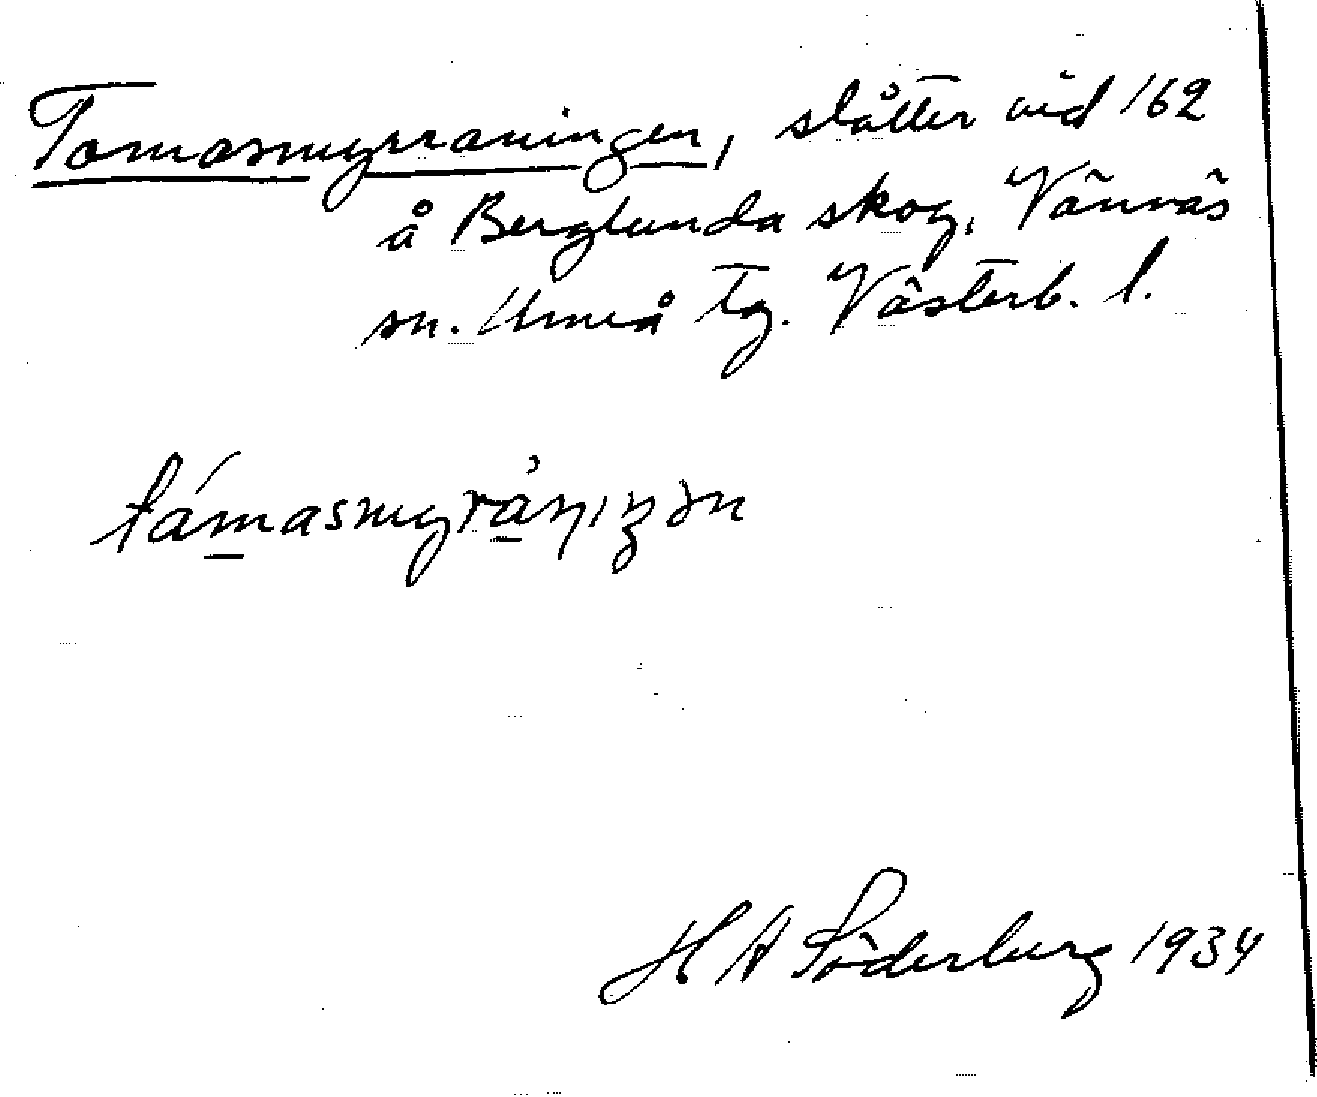 Tomasmyrraningen, slåtter vid 162
å Berglunda skog, Vännäs
sn. Umeå tg. Västerb. l.
H A Söderberg 1934